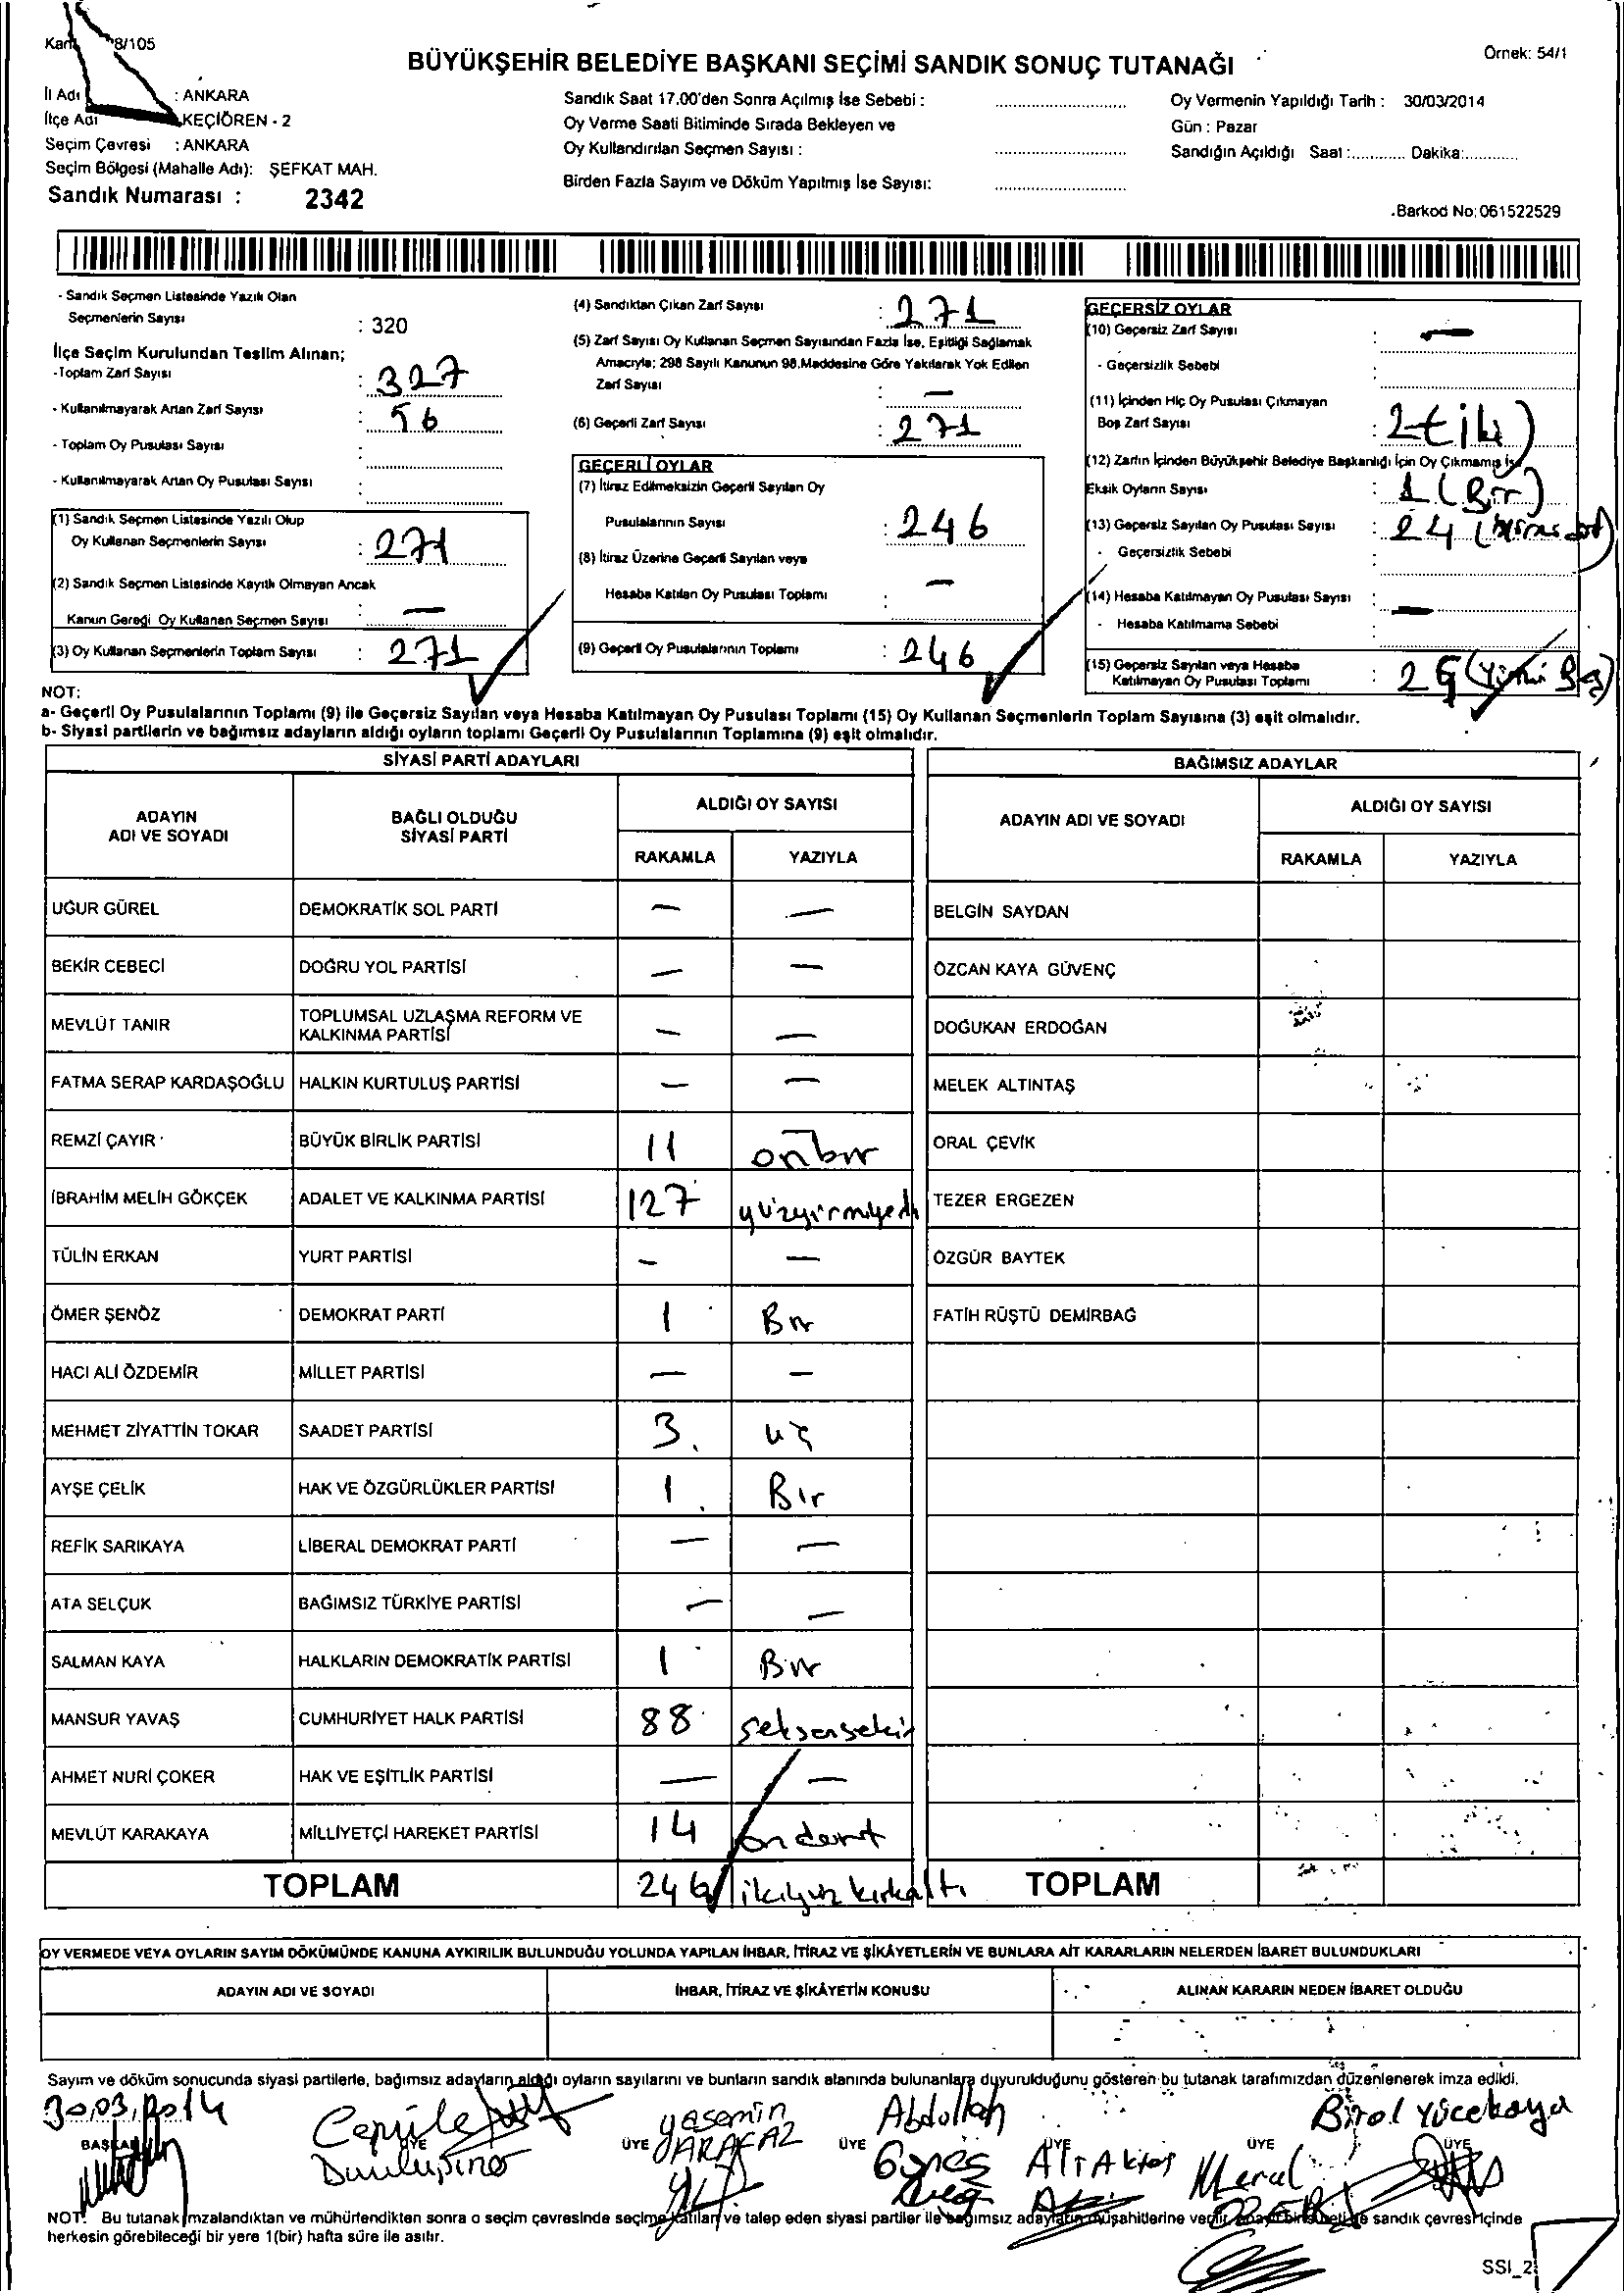 8/105
BÜYÜKŞEHİR BELEDİYE BAŞKANI SEÇİMİ SANDIK SONUÇ TUTANAĞI
Örnek: 54/1
İl Adı : ANKARA
İlçe Adı KEÇİÖREN - 2
Seçim Çevresi : ANKARA
Seçim Bölgesi (Mahalle Adı): ŞEFKAT MAH.
Sandık Numarası : 2342
Sandık Saat 17.00'den Sonra Açılmış İse Sebebi :
Oy Verme Saati Bitiminde Sırada Bekleyen ve
Oy Kullandırılan Seçmen Sayısı :
Birden Fazla Sayım ve Döküm Yapılmış İse Sayısı:
Oy Vermenin Yapıldığı Tarih : 30/03/2014
Gün : Pazar
Sandığın Açıldığı Saat :............ Dakika:............
Barkod No: 061522529
- Sandık Seçmen Listesinde Yazılı Olan
Seçmenlerin Sayısı : 320
İlçe Seçim Kurulundan Teslim Alınan;
-Toplam Zarf Sayısı : 327
- Kullanılmayarak Artan Zarf Sayısı : 56
- Toplam Oy Pusulası Sayısı :
- Kullanılmayarak Artan Oy Pusulası Sayısı :
(1) Sandık Seçmen Listesinde Yazılı Olup
Oy Kullanan Seçmenlerin Sayısı : 271
(2) Sandık Seçmen Listesinde Kayıtlı Olmayan Ancak
Kanun Gereği Oy Kullanan Seçmen Sayısı : —
(3) Oy Kullanan Seçmenlerin Toplam Sayısı : 271
(4) Sandıktan Çıkan Zarf Sayısı : 271
(5) Zarf Sayısı Oy Kullanan Seçmen Sayısından Fazla İse, Eşitliği Sağlamak
Amacıyla; 298 Sayılı Kanunun 98.Maddesine Göre Yakılarak Yok Edilen
Zarf Sayısı : —
(6) Geçerli Zarf Sayısı : 271
GEÇERLİ OYLAR
(7) İtiraz Edilmeksizin Geçerli Sayılan Oy
Pusulalarının Sayısı : 246
(8) İtiraz Üzerine Geçerli Sayılan veya
Hesaba Katılan Oy Pusulası Toplamı : —
(9) Geçerli Oy Pusulalarının Toplamı : 246
GEÇERSİZ OYLAR
(10) Geçersiz Zarf Sayısı : —
- Geçersizlik Sebebi :
(11) İçinden Hiç Oy Pusulası Çıkmayan
Boş Zarf Sayısı :
(12) Zarfın İçinden Büyükşehir Belediye Başkanlığı İçin Oy Çıkmamış İse
Eksik Oyların Sayısı : 1 (Bir)
(13) Geçersiz Sayılan Oy Pusulası Sayısı : 24
- Geçersizlik Sebebi :
(14) Hesaba Katılmayan Oy Pusulası Sayısı : —
- Hesaba Katılmama Sebebi :
(15) Geçersiz Sayılan veya Hesaba
Katılmayan Oy Pusulası Toplamı :
NOT:
a- Geçerli Oy Pusulalarının Toplamı (9) ile Geçersiz Sayılan veya Hesaba Katılmayan Oy Pusulası Toplamı (15) Oy Kullanan Seçmenlerin Toplam Sayısına (3) eşit olmalıdır.
b- Siyasi partilerin ve bağımsız adayların aldığı oyların toplamı Geçerli Oy Pusulalarının Toplamına (9) eşit olmalıdır.
SİYASİ PARTİ ADAYLARI
ADAYIN ADI VE SOYADI
BAĞLI OLDUĞU SİYASİ PARTİ
ALDIĞI OY SAYISI
RAKAMLA YAZIYLA
UĞUR GÜREL DEMOKRATİK SOL PARTİ — —
BEKİR CEBECİ DOĞRU YOL PARTİSİ — —
MEVLÜT TANIR TOPLUMSAL UZLAŞMA REFORM VE KALKINMA PARTİSİ — —
FATMA SERAP KARDAŞOĞLU HALKIN KURTULUŞ PARTİSİ — —
REMZİ ÇAYIR BÜYÜK BİRLİK PARTİSİ 11 onbir
İBRAHİM MELİH GÖKÇEK ADALET VE KALKINMA PARTİSİ 127 yüzyirmiyedi
TÜLİN ERKAN YURT PARTİSİ — —
ÖMER ŞENÖZ DEMOKRAT PARTİ 1 Bir
HACI ALİ ÖZDEMİR MİLLET PARTİSİ — —
MEHMET ZİYATTİN TOKAR SAADET PARTİSİ 3 üç
AYŞE ÇELİK HAK VE ÖZGÜRLÜKLER PARTİSİ 1 Bir
REFİK SARIKAYA LİBERAL DEMOKRAT PARTİ — —
ATA SELÇUK BAĞIMSIZ TÜRKİYE PARTİSİ — —
SALMAN KAYA HALKLARIN DEMOKRATİK PARTİSİ 1 Bir
MANSUR YAVAŞ CUMHURİYET HALK PARTİSİ 88 seksensekiz
AHMET NURİ ÇOKER HAK VE EŞİTLİK PARTİSİ — —
MEVLÜT KARAKAYA MİLLİYETÇİ HAREKET PARTİSİ 14 ondört
TOPLAM 246 ikiyüz kırkaltı
BAĞIMSIZ ADAYLAR
ADAYIN ADI VE SOYADI
ALDIĞI OY SAYISI
RAKAMLA YAZIYLA
BELGİN SAYDAN
ÖZCAN KAYA GÜVENÇ
DOĞUKAN ERDOĞAN
MELEK ALTINTAŞ
ORAL ÇEVİK
TEZER ERGEZEN
ÖZGÜR BAYTEK
FATİH RÜŞTÜ DEMİRBAĞ
TOPLAM
OY VERMEDE VEYA OYLARIN SAYIM DÖKÜMÜNDE KANUNA AYKIRILIK BULUNDUĞU YOLUNDA YAPILAN İHBAR, İTİRAZ VE ŞİKÂYETLERİN VE BUNLARA AİT KARARLARIN NELERDEN İBARET BULUNDUKLARI
ADAYIN ADI VE SOYADI
İHBAR, İTİRAZ VE ŞİKÂYETİN KONUSU
ALINAN KARARIN NEDEN İBARET OLDUĞU
Sayım ve döküm sonucunda siyasi partilerle, bağımsız adayların aldığı oyların sayılarını ve bunların sandık alanında bulunanlara duyurulduğunu gösteren bu tutanak tarafımızdan düzenlenerek imza edildi.
30.03.2014
BAŞKAN
Dumlupınar
ÜYE
Yasemin
ÜYE
Abdullah Güneş
ÜYE
Ali Aktaş
ÜYE
Meral
ÜYE
Birol Yücekaya
ÜYE
NOT: Bu tutanak imzalandıktan ve mühürlendikten sonra o seçim çevresinde seçime katılan ve talep eden siyasi partiler ile bağımsız adayların müşahitlerine verilir, sandık çevresi içinde
herkesin görebileceği bir yere 1(bir) hafta süre ile asılır.
SSI_2